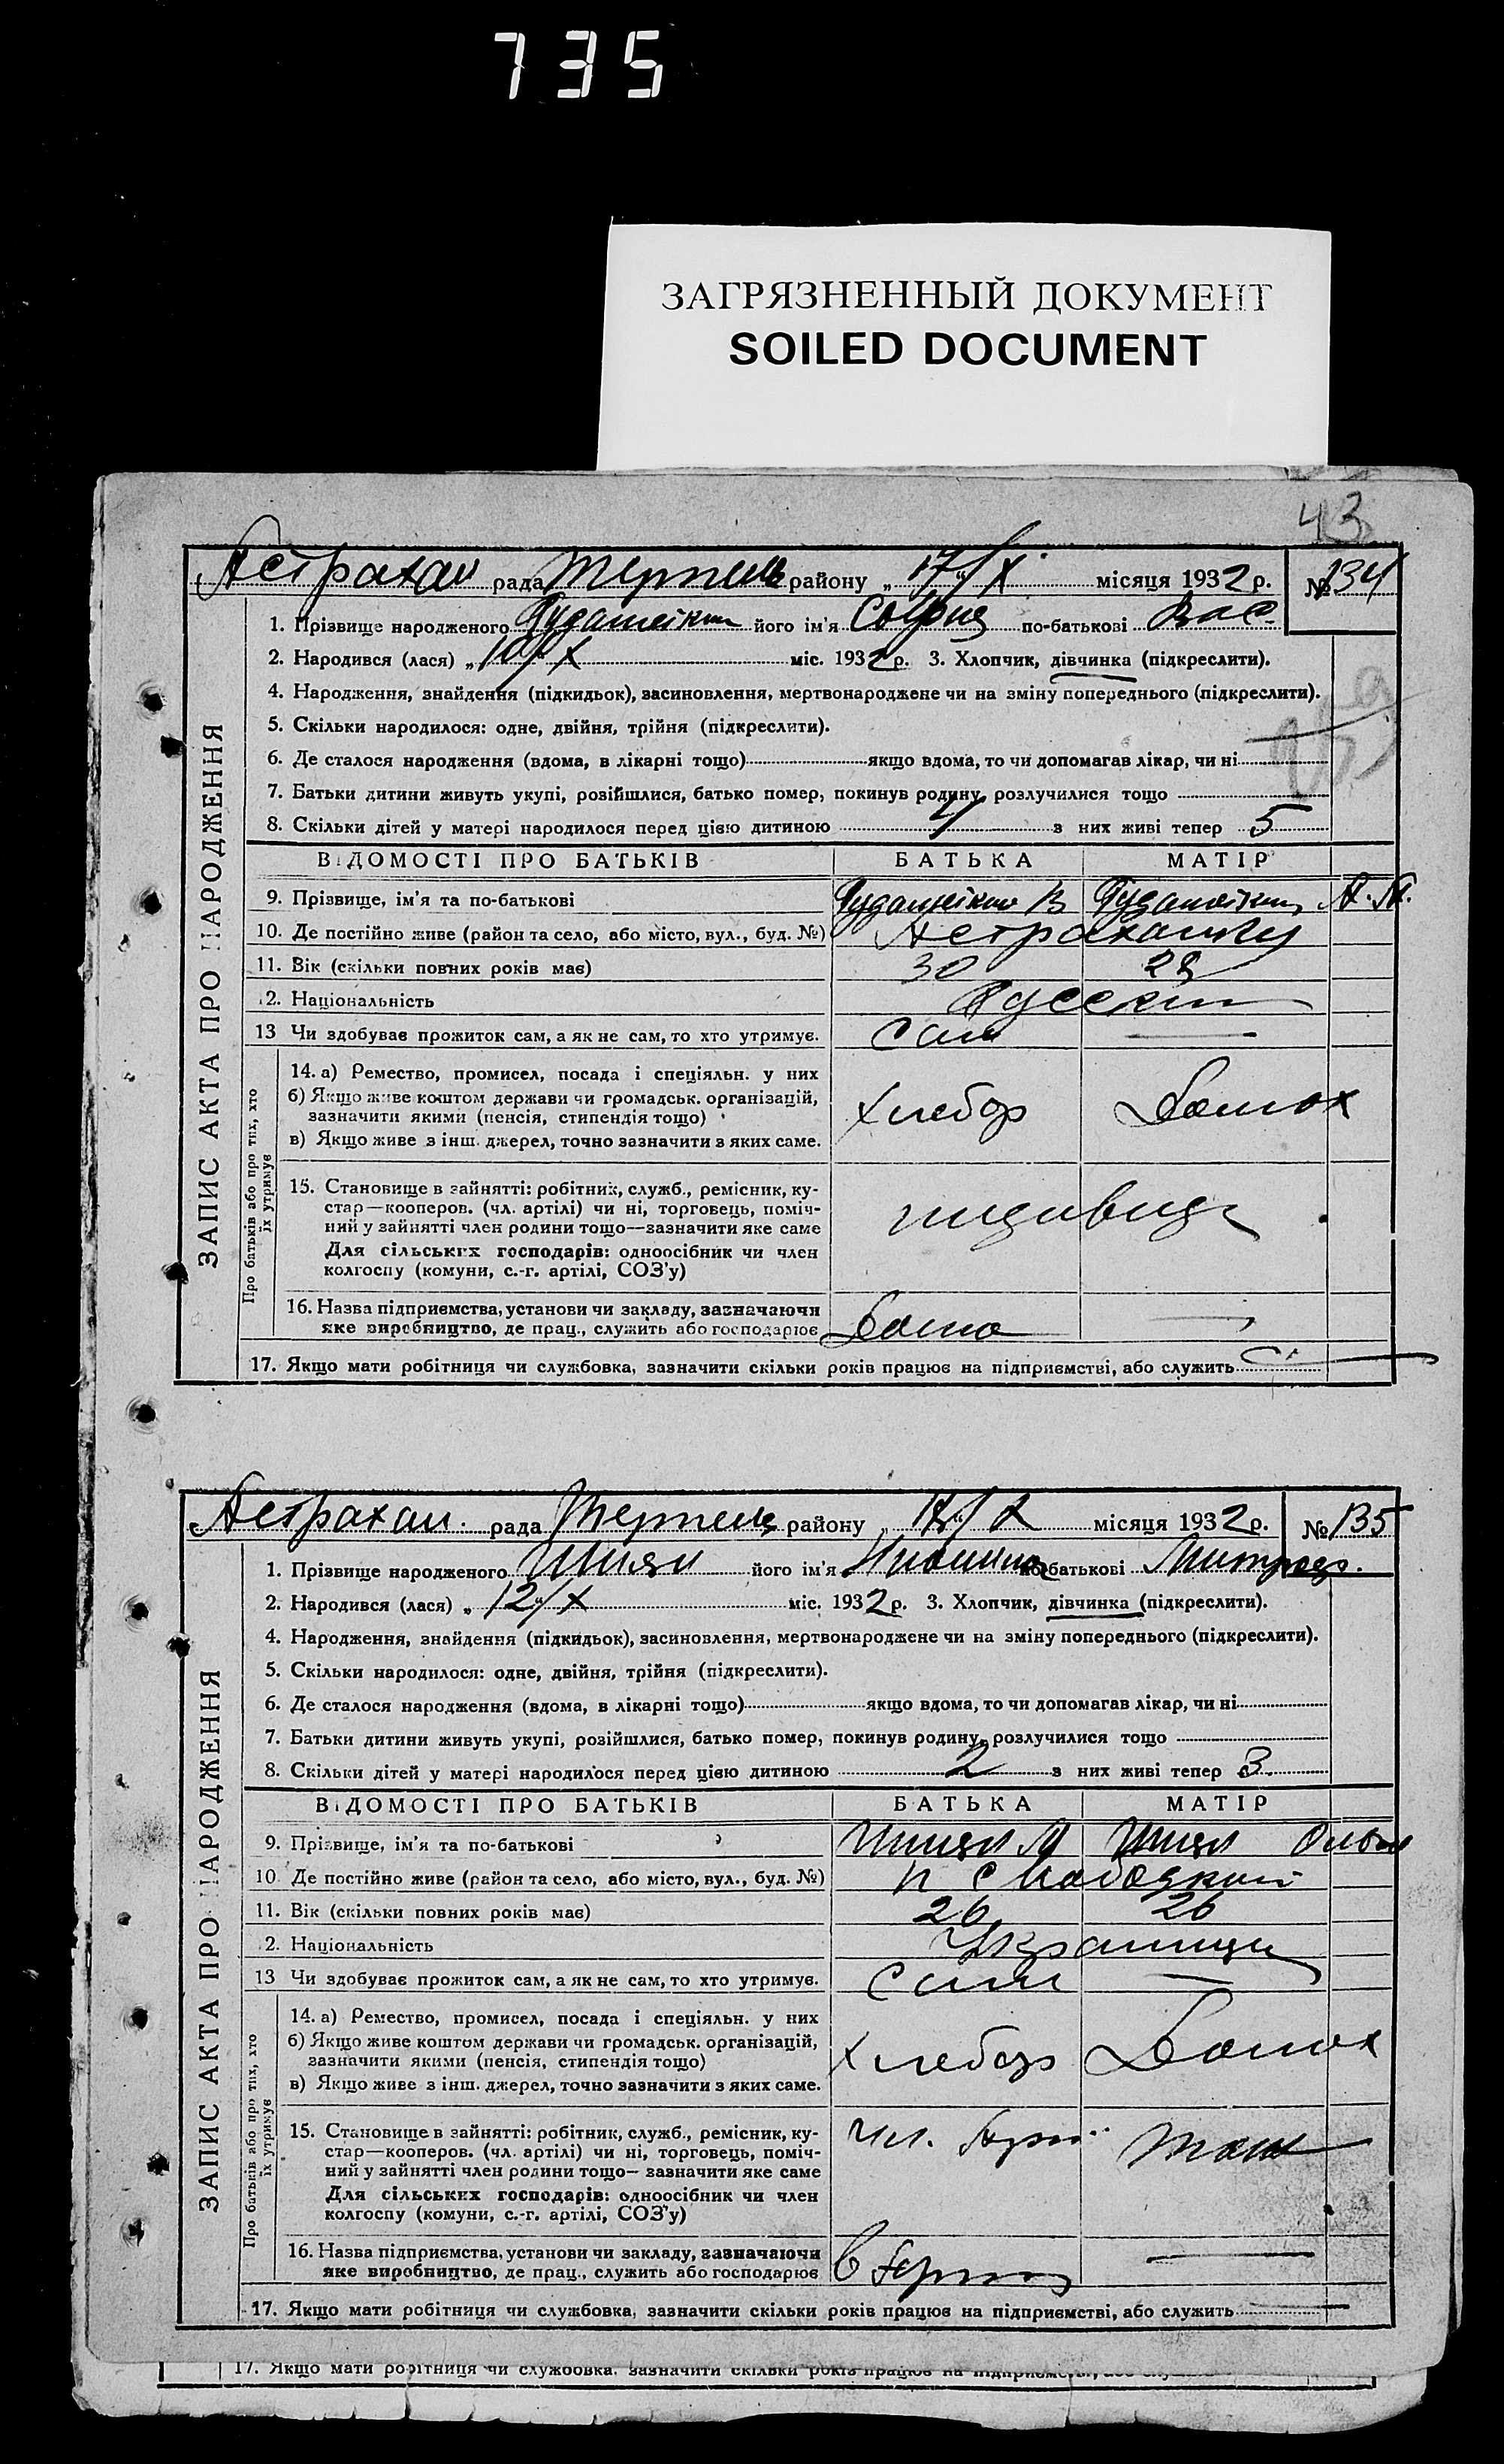 735
ЗАГРЯЗНЕННЫЙ ДОКУМЕНТ
SOILED DOCUMENT
43
Астрахан рада района „17/X місяця 1932 р. № 134
ЗАПИС АКТА ПРО НАРОДЖЕННЯ
1. Прізвище народженого його ім'я по-батькові Вас.
2. Народився (лася) „10/X міс. 1932 р. 3. Хлопчик, дівчинка (підкреслити).
4. Народження, знайдення (підкидьок), засиновлення, мертвонароджене чи на зміну попереднього (підкреслити).
5. Скільки народилося: одне, двійня, трійня (підкреслити).
6. Де сталося народження (вдома, в лікарні тощо) якщо вдома, то чи допомагав лікар, чи ні
7. Батьки дитини живуть укупі, розійшлися, батько помер, покинув родину, розлучилися тощо
8. Скільки дітей у матері народилося перед цією дитиною 4 з них живі тепер 5
ВІДОМОСТІ ПРО БАТЬКІВ БАТЬКА МАТІР
9. Прізвище, ім'я та по-батькові
10. Де постійно живе (район та село, або місто, вул., буд. №) Астраханку
11. Вік (скільки повних років має) 30 28
12. Національність Русский
13 Чи здобуває прожиток сам, а як не сам, то хто утримує. Сам —
Про батьків або про тих, хто їх утримує
14. а) Ремество, промисел, посада і спеціяльн. у них
б) Якщо живе коштом держави чи громадськ. організацій,
зазначити якими (пенсія, стипендія тощо) хлебор Домох
в) Якщо живе з інш. джерел, точно зазначити з яких саме.
15. Становище в зайнятті: робітник, служб., ремісник, ку-
стар—кооперов. (чл. артілі) чи ні, торговець, поміч-
ний у зайнятті член родини тощо—зазначити яке саме индивид
Для сільських господарів: одноосібник чи член
колгоспу (комуни, с.-г. артілі, СОЗ'у)
16. Назва підприємства, установи чи закладу, зазначаючи
яке виробництво, де прац., служить або господарює Дома —
17. Якщо мати робітниця чи службовка, зазначити скільки років працює на підприємстві, або служить
Астрахан. рада району місяця 1932 р. № 135
ЗАПИС АКТА ПРО НАРОДЖЕННЯ
1. Прізвище народженого Шиян його ім'я по-батькові
2. Народився (лася) „12/X міс. 1932 р. 3. Хлопчик, дівчинка (підкреслити).
4. Народження, знайдення (підкидьок), засиновлення, мертвонароджене чи на зміну попереднього (підкреслити).
5. Скільки народилося: одне, двійня, трійня (підкреслити).
6. Де сталося народження (вдома, в лікарні тощо) якщо вдома, то чи допомагав лікар, чи ні
7. Батьки дитини живуть укупі, розійшлися, батько помер, покинув родину, розлучилися тощо
8. Скільки дітей у матері народилося перед цією дитиною 2 з них живі тепер 3.
ВІДОМОСТІ ПРО БАТЬКІВ БАТЬКА МАТІР
9. Прізвище, ім'я та по-батькові Шиян М Шиян
10 Де постійно живе (район та село, або місто, вул., буд. №)
11. Вік (скільки повних років має) 26 26
12. Національність Украинцы
13 Чи здобуває прожиток сам, а як не сам, то хто утримує. Сам —
Про батьків або про тих, хто їх утримує
14. а) Ремество, промисел, посада і спеціяльн. у них
б) Якщо живе коштом держави чи громадськ. організацій,
зазначити якими (пенсія, стипендія тощо) хлебор Домох
в) Якщо живе з інш. джерел, точно зазначити з яких саме.
15. Становище в зайнятті: робітник, служб., ремісник, ку-
стар—кооперов. (чл. артілі) чи ні, торговець, поміч-
ний у зайнятті член родини тощо—зазначити яке саме
Для сільських господарів: одноосібник чи член
колгоспу (комуни, с.-г. артілі, СОЗ'у)
16. Назва підприємства, установи чи закладу, зазначаючи
яке виробництво, де прац., служить або господарює —
17. Якщо мати робітниця чи службовка, зазначити скільки років працює на підприємстві, або служить —
17. Якщо мати робітниця чи службовка, зазначити скільки років працює на підприємстві,